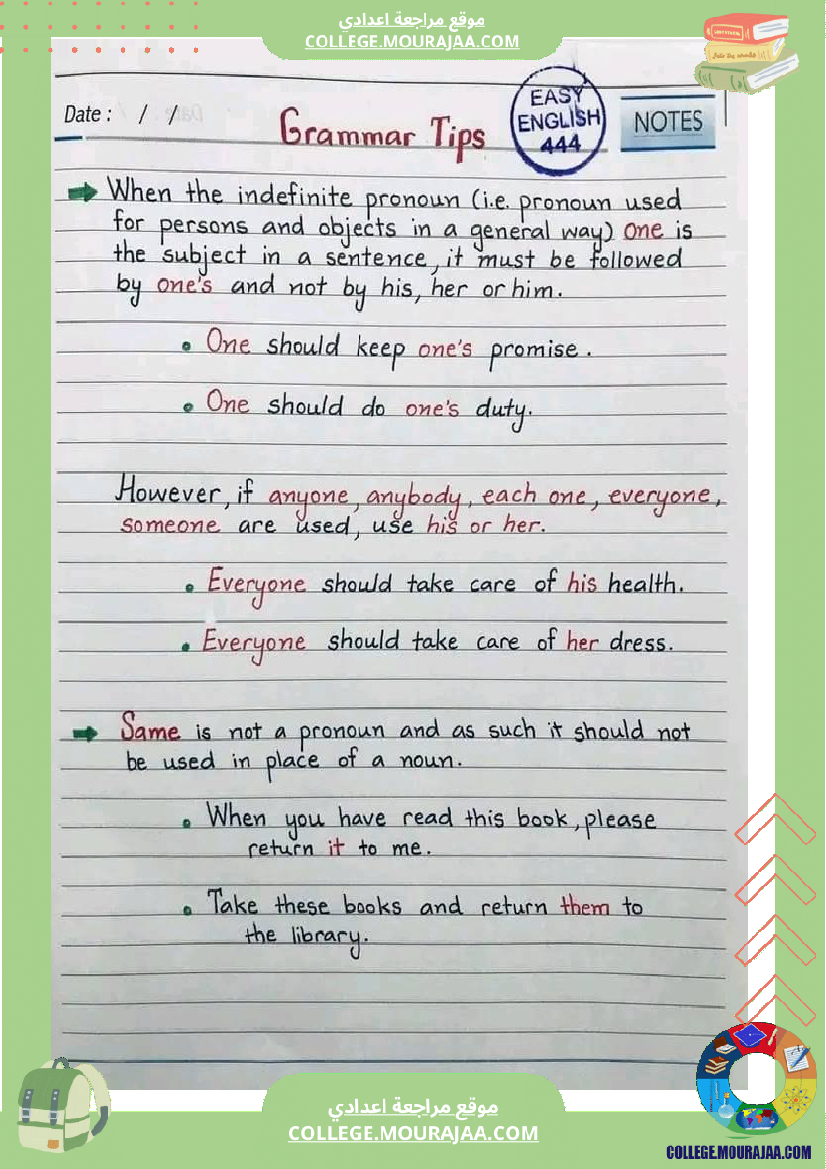 موقع مراجعة اعدادي
COLLEGE.MOURAJAA.COM
Date : / /
Grammar Tips
EASY
ENGLISH
444
NOTES
When the indefinite pronoun (i.e. pronoun used
for persons and objects in a general way) one is
the subject in a sentence, it must be followed
by one's and not by his, her or him.
• One should keep one's promise.
• One should do one's duty.
However, if anyone, anybody, each one, everyone,
someone are used, use his or her.
• Everyone should take care of his health.
• Everyone should take care of her dress.
Same is not a pronoun and as such it should not
be used in place of a noun.
• When you have read this book, please
return it to me.
• Take these books and return them to
the library.
موقع مراجعة اعدادي
COLLEGE.MOURAJAA.COM
COLLEGE.MOURAJAA.COM